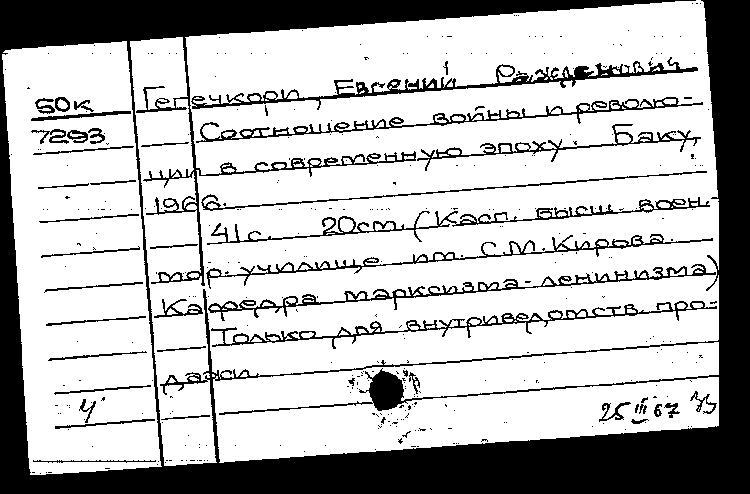 50к Гегечкори, Евгений Ражденович
7293 Соотношение войны и револю-
ции в современную эпоху. Баку,
1966.
41с. 20см. (Касп. высш. воен.-
мор. училище им. С.М.Кирова.
Кафедра марксизма-ленинизма)
Только для внутриведомств. про-
дажи.
ч
25 III 67